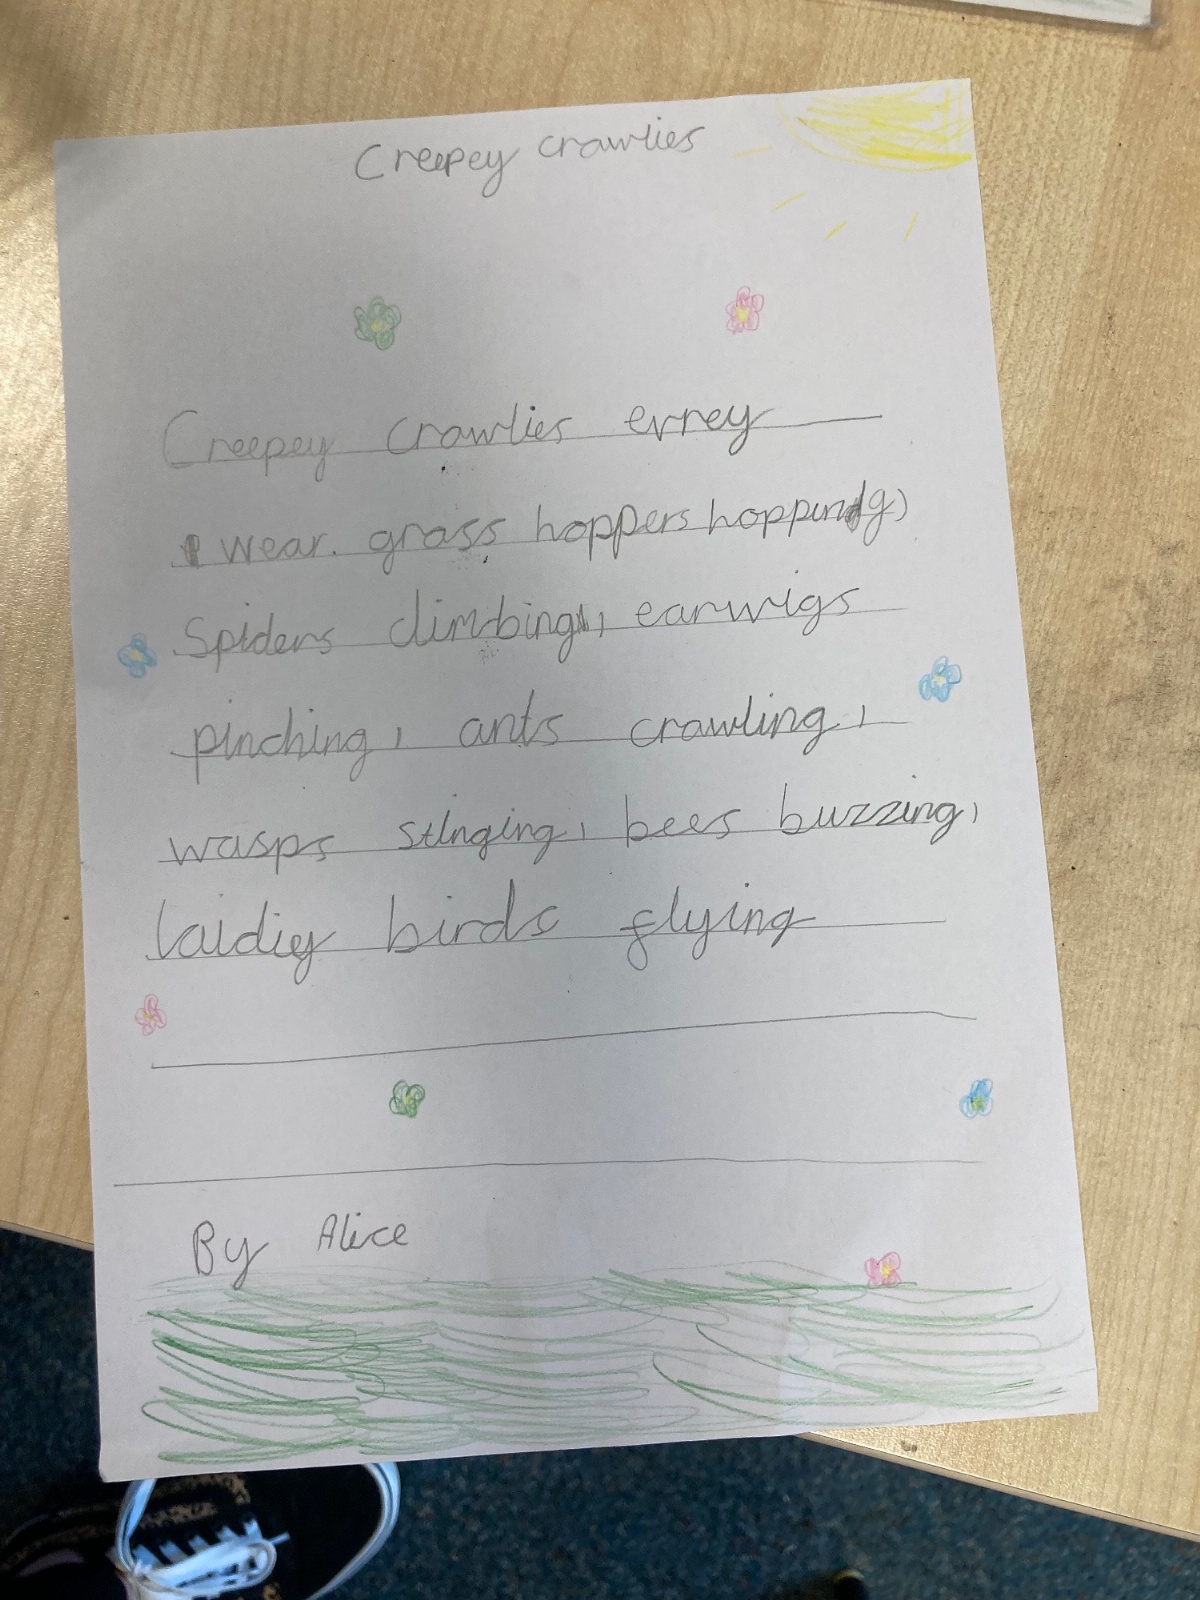 Creepey crawlies
Creepey crawlies evrey
wear. grass hoppers hopping,
Spiders climbing, earwigs
pinching, ants crawling,
wasps stinging, bees buzzing,
laidiey birds flying
By Alice